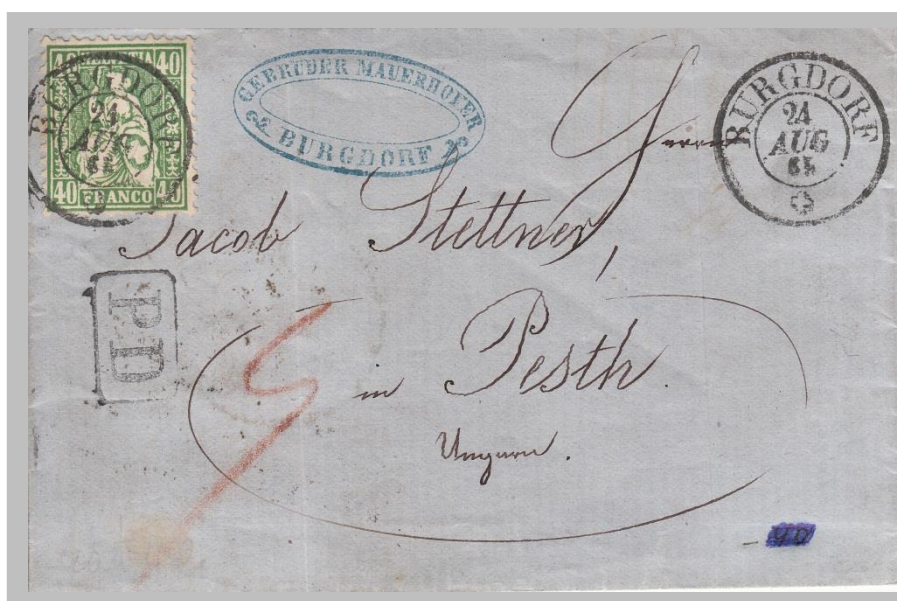 40 HELVETIA 40
40 FRANCO 40
BURGDORF
24
AUG
65
GEBRÜDER MAUERHOFER
BURGDORF
BURGDORF
24
AUG
65
Herrn
Jacob Stettner,
PD
in Pesth.
Ungarn.
- 40